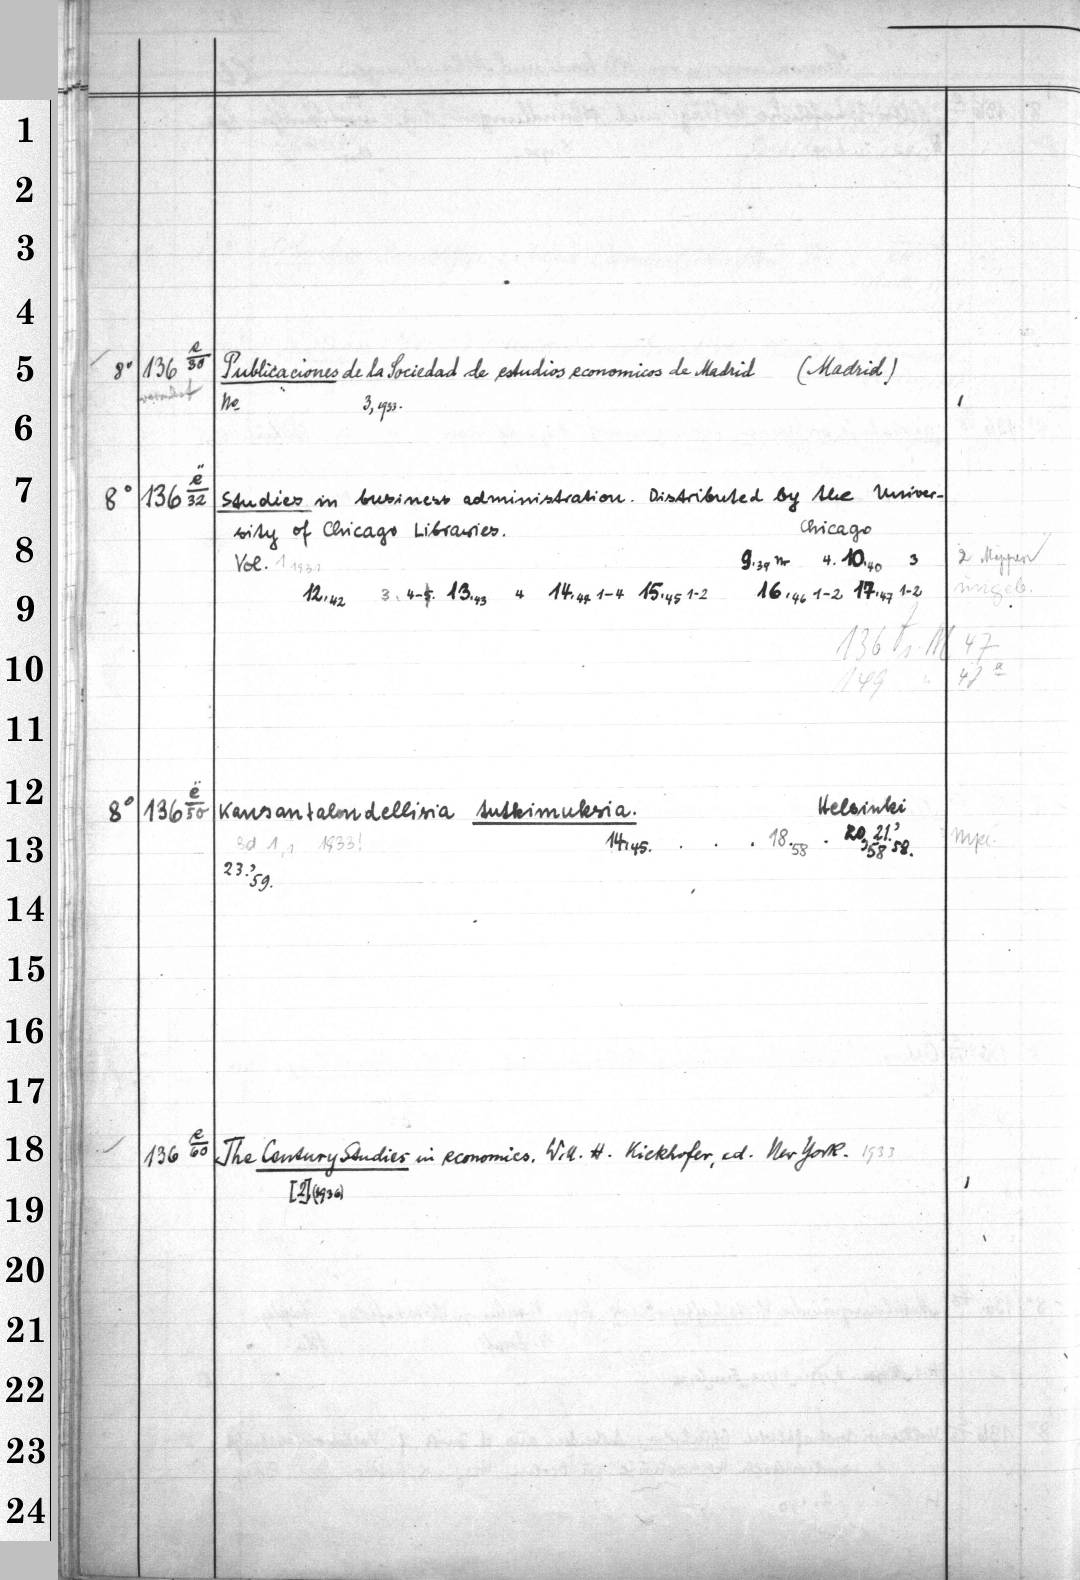 1
2
3
4
5
6
7
8
9
10
11
12
13
14
15
16
17
18
19
20
21
22
23
24
8° 136 e/30 Publicaciones de la Sociedad de estudios economicos de Madrid (Madrid)
No 3, 1933.
8° 136 ë/32 Studies in business administration. Distributed by the Univer-
sity of Chicago Libraries. Chicago
Vol. 1 9.39 Nr 4. 10.40 3 2 Mappen
12.42 3. 4-5. 13.43 4 14.44 1-4 15.45 1-2 16.46 1-2 17.47 1-2 ungeb.
136 47
149 " 48 a
8° 136 ë/50 Kansantaloudellisia tutkimuksia. Helsinki
Bd 1,1 1933! 14,45. . . . 18.58 . 20,58 21.'58.
23.'59.
136 e/60 The Century Studies in economics. Will. H. Kiekhofer, ed. New York. 1933
[2] (1936)